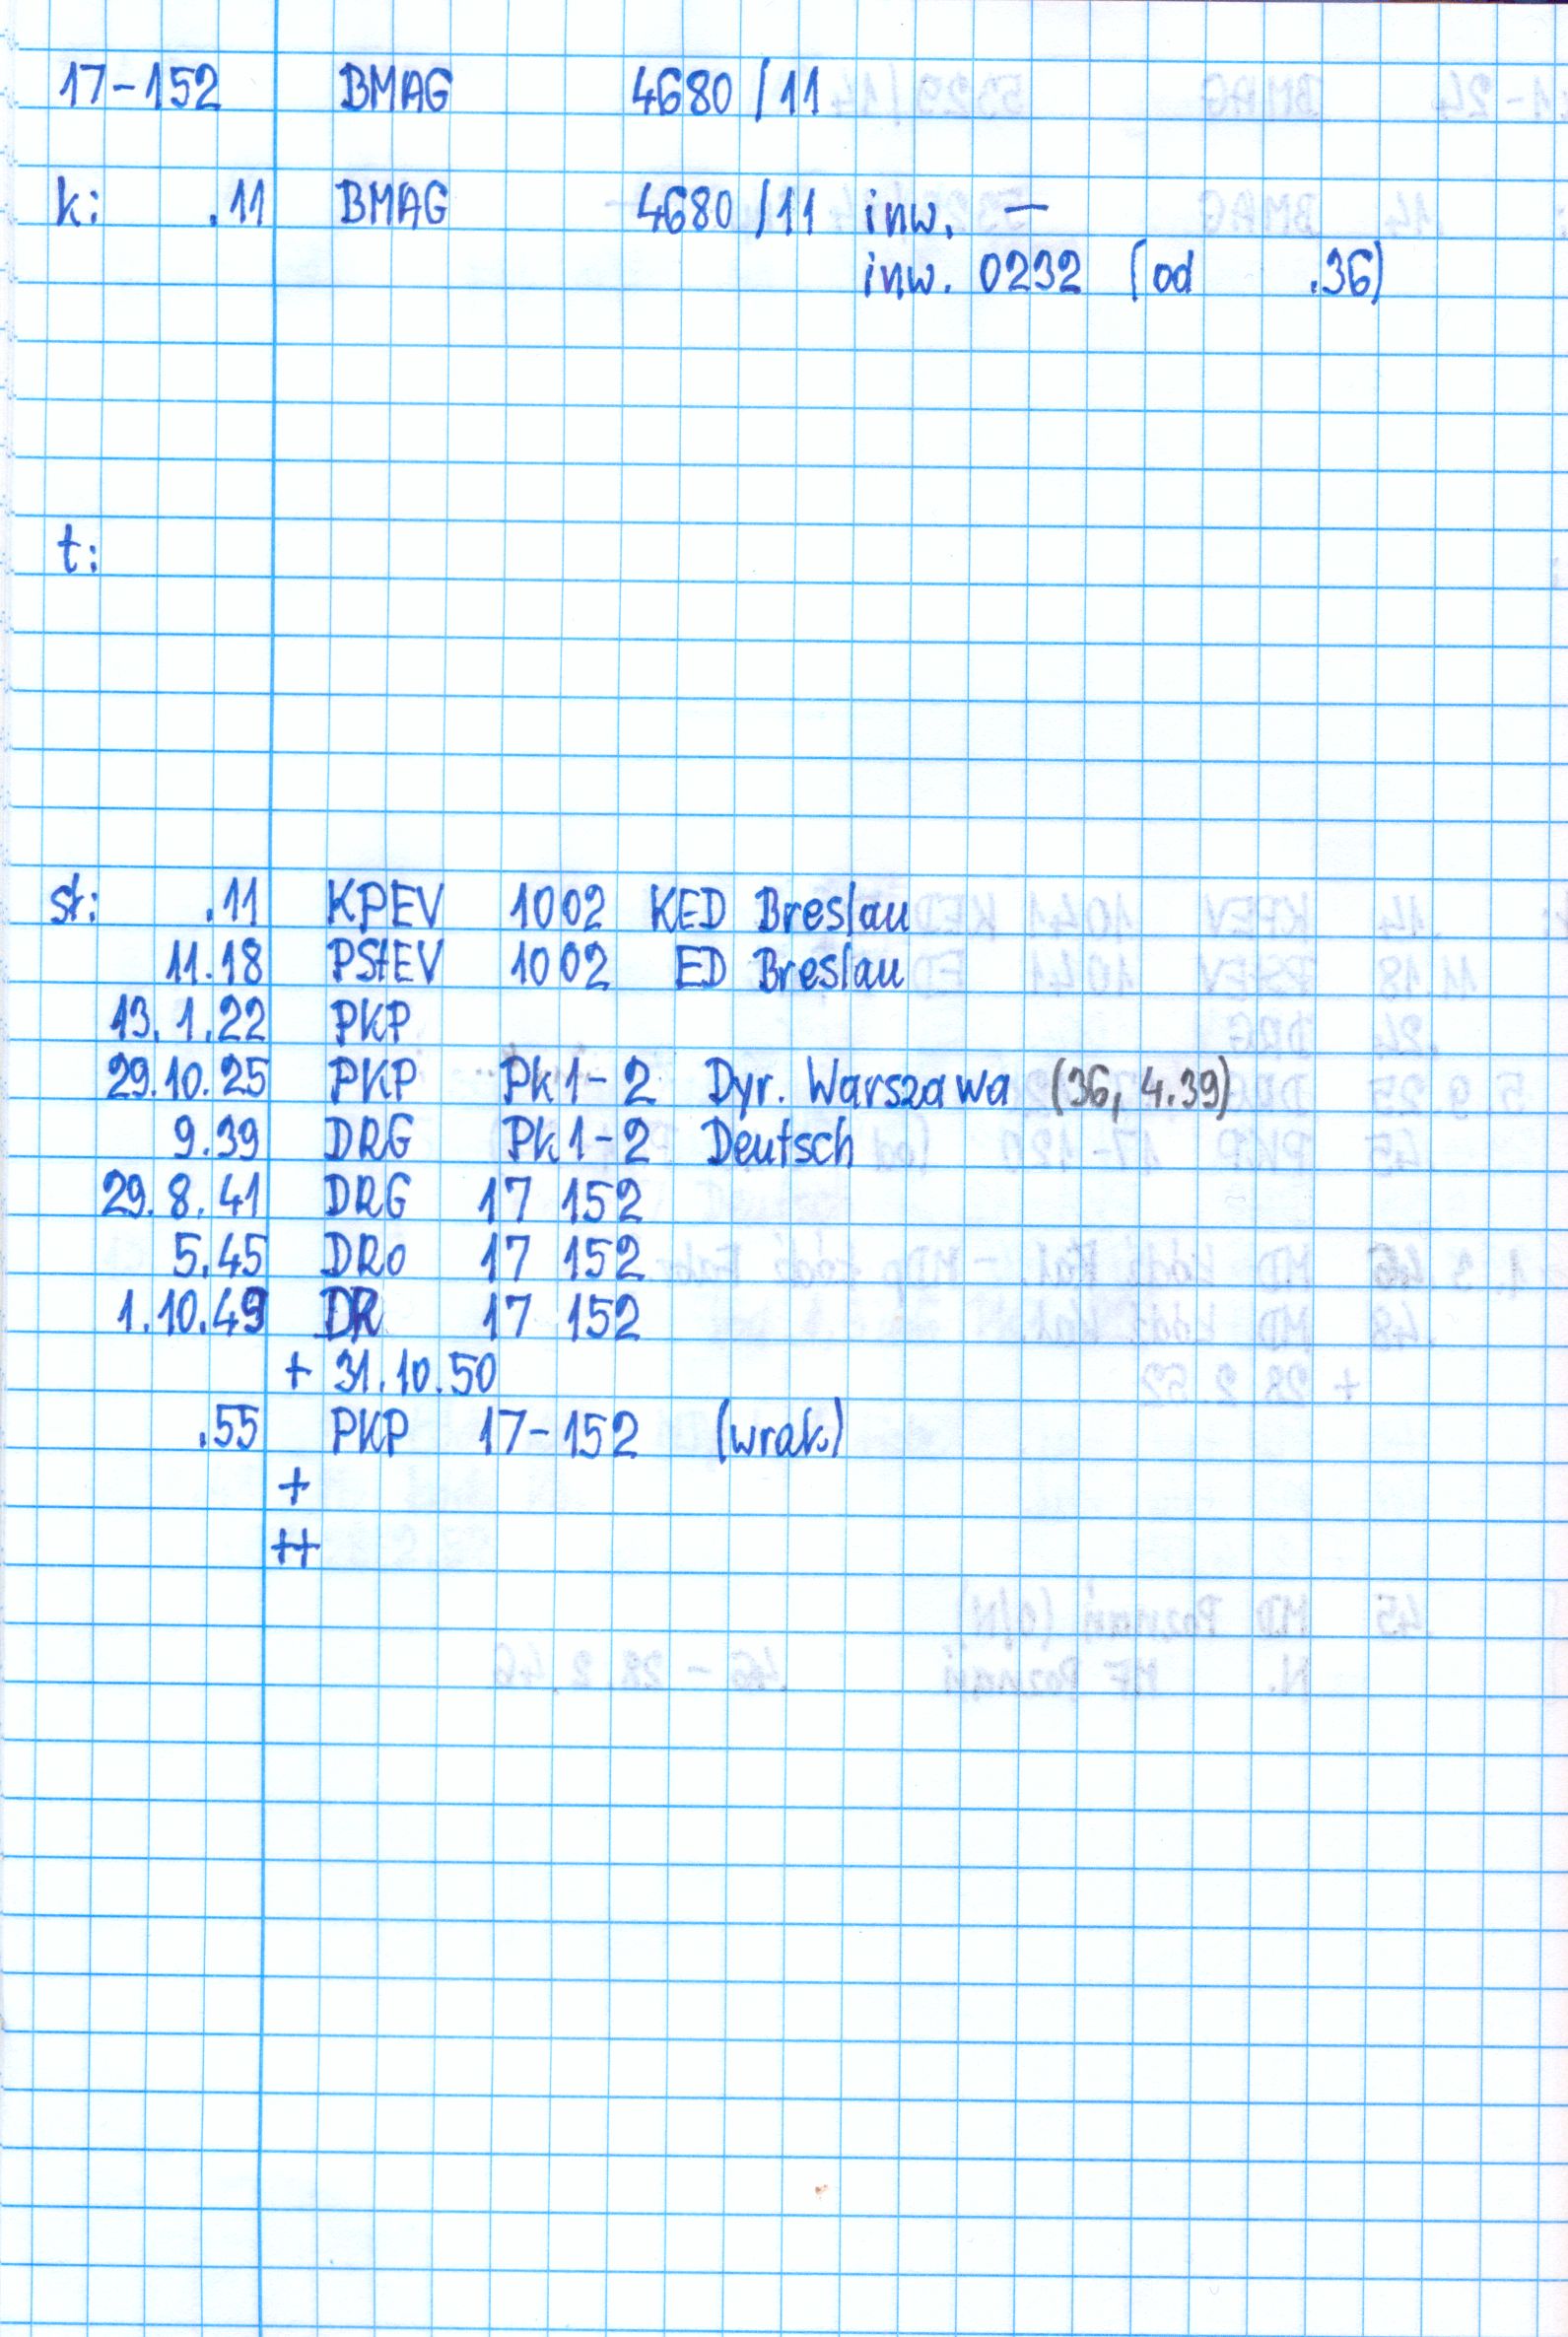 17-152 BMAG 4680/11
k: .11 BMAG 4680/11 inw. —
inw. 0232 (od .36)
t:
st: .11 KPEV 1002 KED Breslau
11.18 PStEV 1002 ED Breslau
13.1.22 PKP
29.10.25 PKP Pk1-2 Dyr. Warszawa (36, 4.39)
9.39 DRG Pk1-2 Deutsch
29.8.41 DRG 17 152
5.45 DRo 17 152
1.10.49 DR 17 152
+ 31.10.50
.55 PKP 17-152 (wrak)
+
++